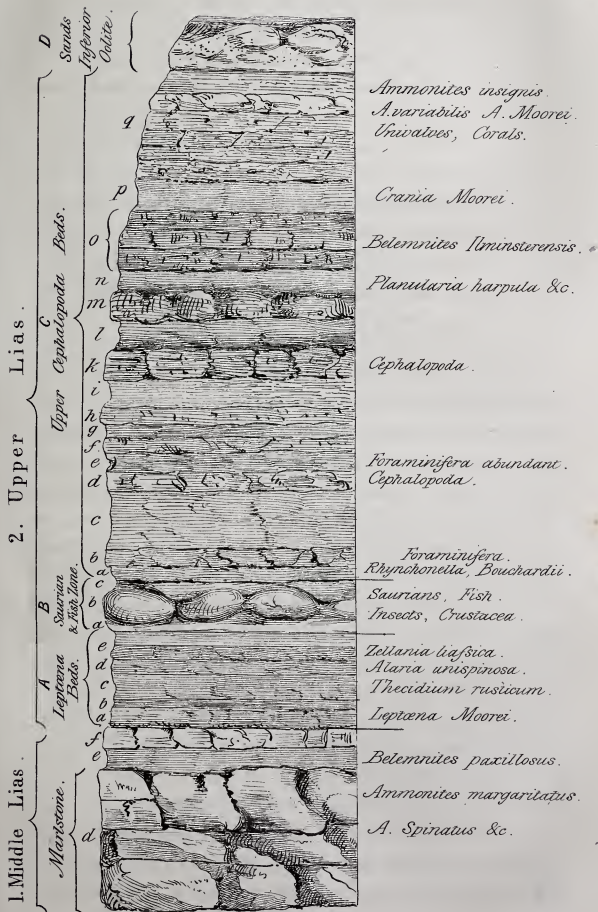 D
Sands
Inferior
Oolite.
2. Upper Lias.
C
Upper Cephalopoda Beds.
B
Saurian
& Fish Zone.
A
Leptæna
Beds.
1. Middle Lias.
Marlstone.
q
p
o
n
m
l
k
i
h
g
f
e
d
c
b
a
c
b
a
e
d
c
b
a
f
e
d
Ammonites insignis.
A. variabilis A. Moorei.
Univalves, Corals.
Crania Moorei.
Belemnites Ilminsterensis.
Planularia harpula &c.
Cephalopoda.
Foraminifera abundant.
Cephalopoda.
Foraminifera.
Rhynchonella, Bouchardii.
Saurians, Fish.
Insects, Crustacea.
Zellania liaſsica.
Alaria unispinosa.
Thecidium rusticum.
Leptæna Moorei.
Belemnites paxillosus.
Ammonites margaritatus.
A. Spinatus &c.